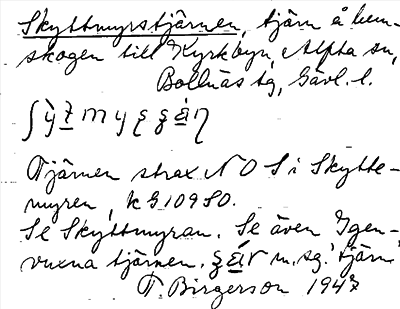 Skyttmyrstjärnen, tjärn å hem-
skogen till Kyrkbyn, Alfta sn,
Bollnäs tg, Gävl. l.
Tjärnen strax N O S i Skytte-
myren, k G 109 SO.
Se Skyttmyran. Se även Igen-
vuxna tjärnen. m. sg. 'tjärn'
T. Birgerson 1947